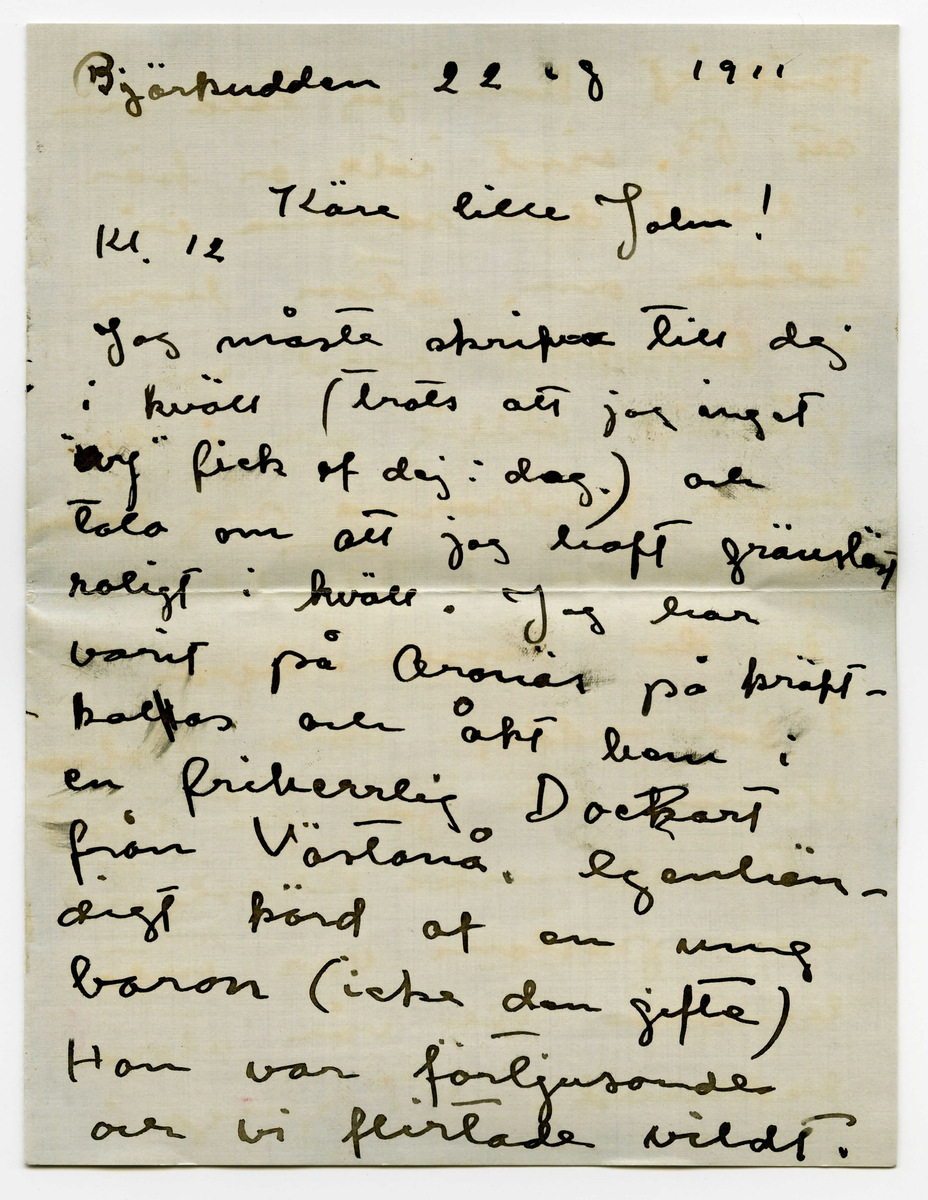 Björkudden 22 . 8 1911
Käre lille John!
Kl. 12
Jag måste skrifva till dej
i kväll (trots att jag inget
fick af dej i dag.) och
tala om att jag haft gränslöst
roligt i kväll. Jag har
varit på Aronäs på kräft-
kalas och åkt hem i
en friherrlig Dockart
från Västanå. Egenhän-
digt körd af en ung
baron (icke den gifte)
Han var förtjusande
och vi flirtade vildt.